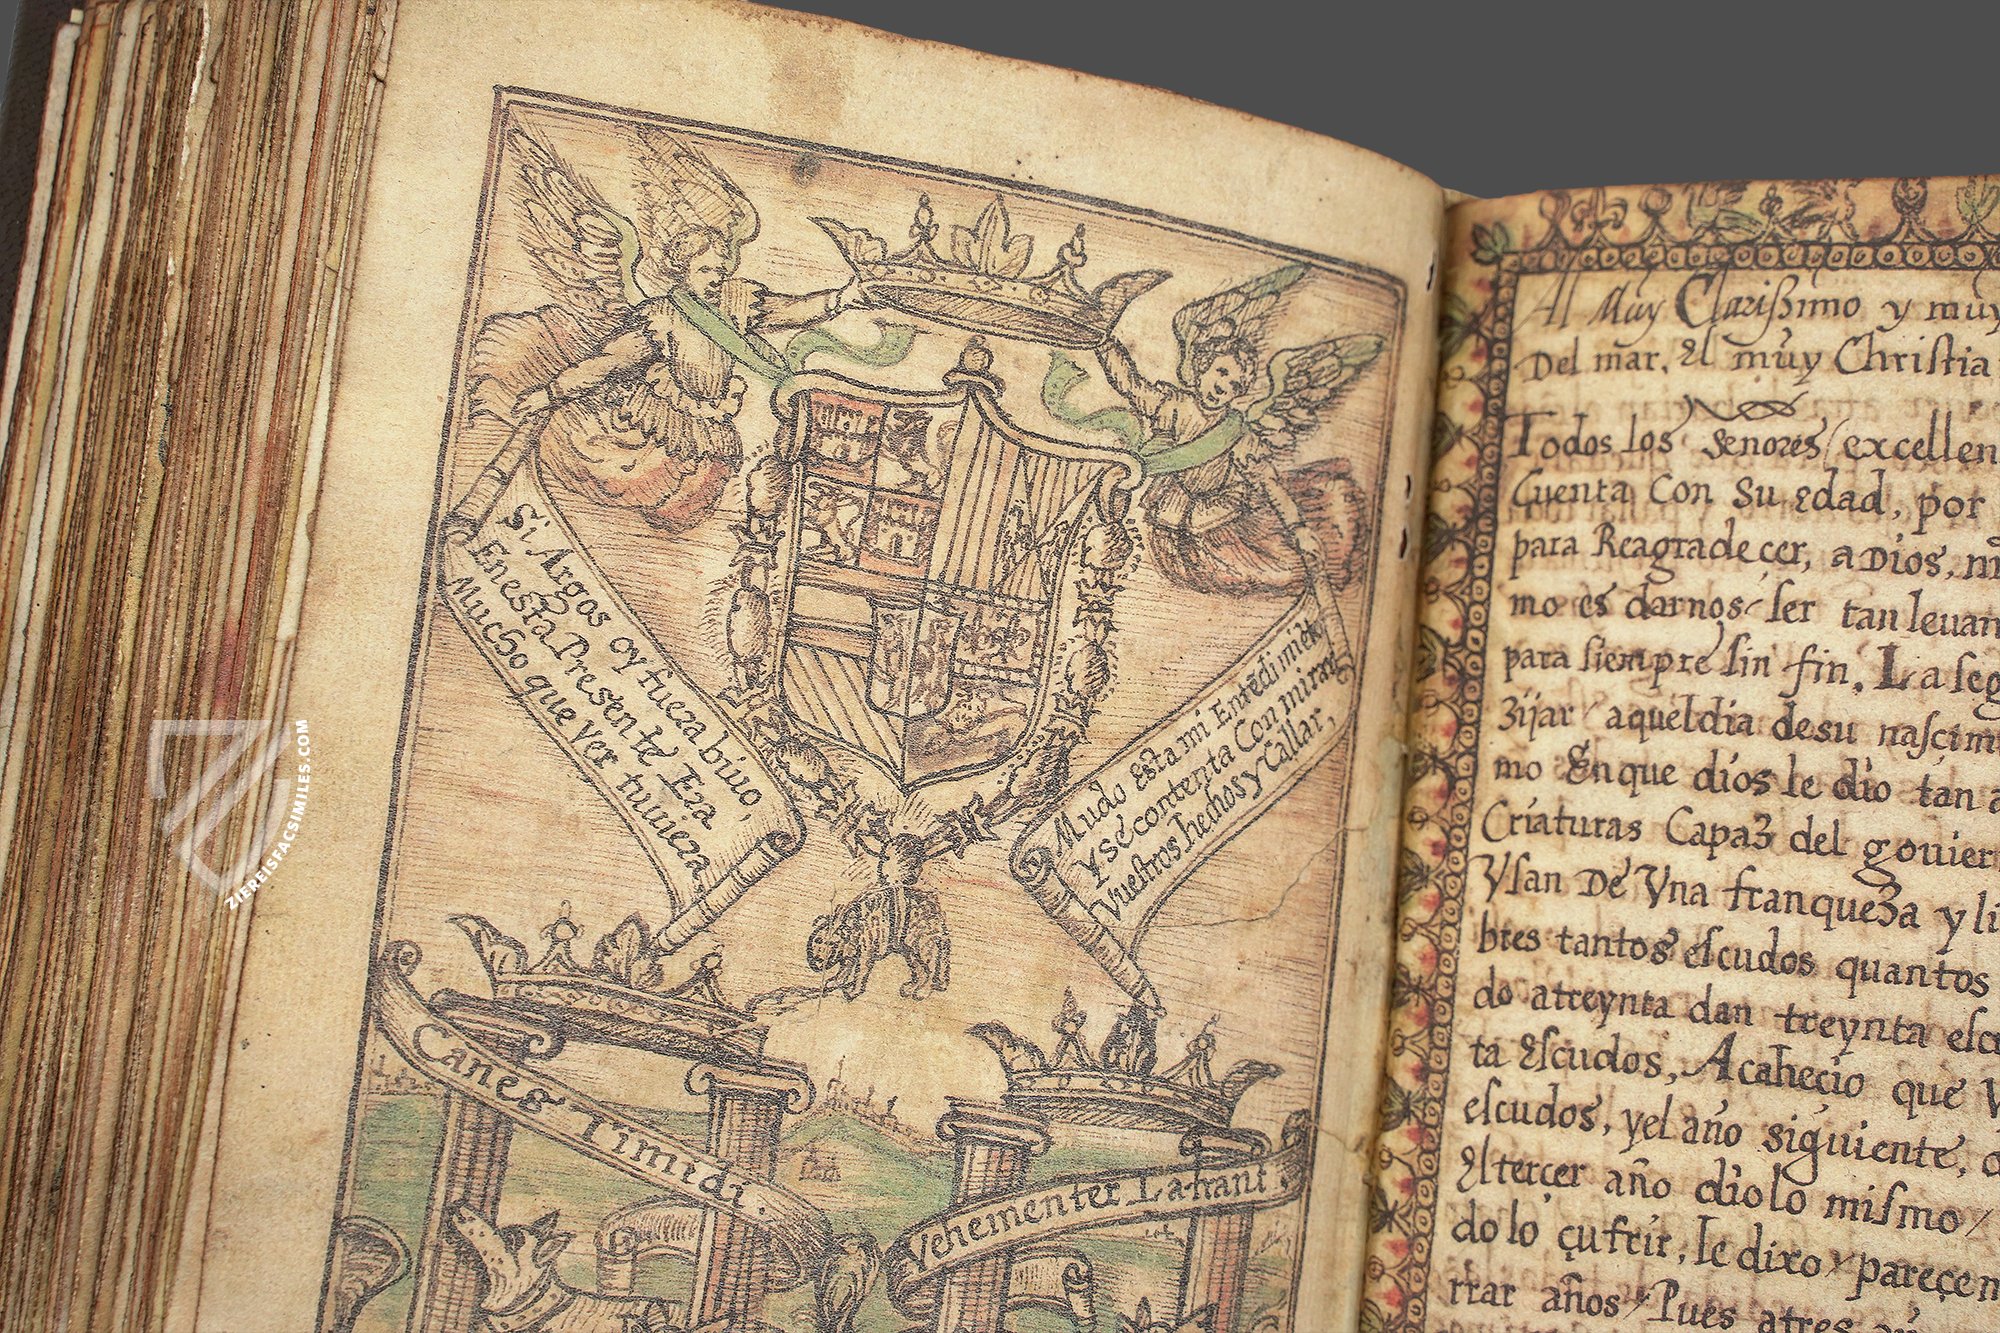 Si Argos oy fuera biuo,
Enesta Presente Era
Mucho que ver tuuiera,
Mudo Esta mi Entēdimiēto
Y se contenta Con mirar,
Vuestros hechos y Callar,
Canes Timidi.
Vehementer Latrant.
Al Muy Clarissimo y muy
Del mar, El muy Christia
Todos los Senores / excellen
Cuenta Con Su Edad, por
para Reagradecer, a Dios, m
mo es darnos / ser tan leuan
para siempre sin fin, La seg
Zijar / aquel dia de su nascim
mo En que dios le dio tan a
Criaturas Capaz del gouier
Ysan De Vna franqueza y li
bres tantos escudos quantos
do a treynta dan treynta escu
ta Escudos, Acahecio que V
escudos, y el año siguiente,
El terçer año diolo mismo /
dolo çufrir, le dixo / pareçen
rrar años / Pues atres
ZIEREISFACSIMILES.COM